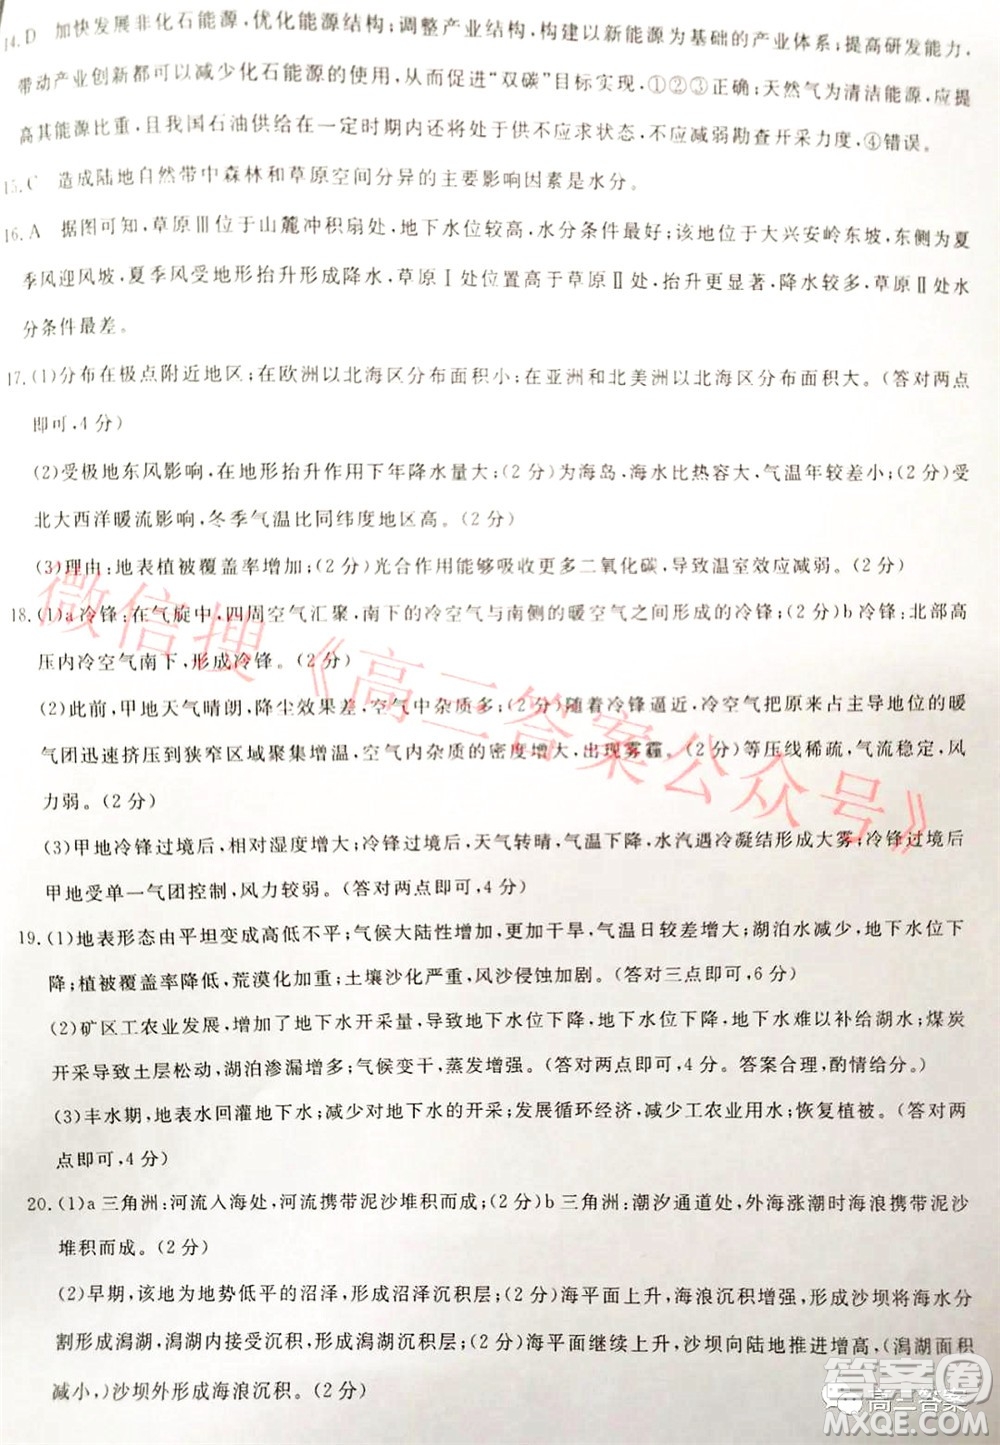 14.D 加快发展非化石能源,优化能源结构;调整产业结构,构建以新能源为基础的产业体系;提高研发能力,
带动产业创新都可以减少化石能源的使用,从而促进“双碳”目标实现,①②③正确;天然气为清洁能源,应提
高其能源比重,且我国石油供给在一定时期内还将处于供不应求状态,不应减弱勘查开采力度,④错误。
15.C 造成陆地自然带中森林和草原空间分异的主要影响因素是水分。
16.A 据图可知,草原Ⅲ位于山麓冲积扇处,地下水位较高,水分条件最好;该地位于大兴安岭东坡,东侧为夏
季风迎风坡,夏季风受地形抬升形成降水,草原Ⅰ处位置高于草原Ⅱ处,抬升更显著,降水较多,草原Ⅱ处水
分条件最差。
17.(1)分布在极点附近地区;在欧洲以北海区分布面积小;在亚洲和北美洲以北海区分布面积大。(答对两点
即可,4 分)
(2)受极地东风影响,在地形抬升作用下年降水量大;(2 分)为海岛,海水比热容大,气温年较差小;(2 分)受
北大西洋暖流影响,冬季气温比同纬度地区高。(2 分)
(3)理由:地表植被覆盖率增加;(2 分)光合作用能够吸收更多二氧化碳,导致温室效应减弱。(2 分)
18.(1)a 冷锋:在气旋中,四周空气汇聚,南下的冷空气与南侧的暖空气之间形成的冷锋;(2 分)b 冷锋:北部高
压内冷空气南下,形成冷锋。(2 分)
(2)此前,甲地天气晴朗,降尘效果差,空气中杂质多;(2 分)随着冷锋逼近,冷空气把原来占主导地位的暖
气团迅速挤压到狭窄区域聚集增温,空气内杂质的密度增大,出现雾霾。(2 分)等压线稀疏,气流稳定,风
力弱。(2 分)
(3)甲地冷锋过境后,相对湿度增加;冷锋过境后,天气转晴,气温下降,水汽遇冷凝结形成大雾;冷锋过境后
甲地受单一气团控制,风力较弱。(答对两点即可,4 分)
19.(1)地表形态由平坦变成高低不平;气候大陆性增加,更加干旱,气温日较差增大;湖泊水减少,地下水位下
降;植被覆盖率降低,荒漠化加重;土壤沙化严重,风沙侵蚀加剧。(答对三点即可,6 分)
(2)矿区工农业发展,增加了地下水开采量,导致地下水位下降,地下水位下降,地下水难以补给湖水;煤炭
开采导致土层松动,湖泊渗漏增多;气候变干,蒸发增强。(答对两点即可,4 分。答案合理,酌情给分。)
(3)丰水期,地表水回灌地下水;减少对地下水的开采;发展循环经济,减少工农业用水;恢复植被。(答对两
点即可,4 分)
20.(1)a 三角洲:河流入海处,河流携带泥沙堆积而成;(2 分)b 三角洲:潮汐通道处,外海涨潮时海浪携带泥沙
堆积而成。(2 分)
(2)早期,该地为地势低平的沼泽,形成沼泽沉积层;(2 分)海平面上升,海浪沉积增强,形成沙坝将海水分
割形成潟湖,潟湖内接受沉积,形成潟湖沉积层;(2 分)海平面继续上升,沙坝向陆地推进增高,(潟湖面积
减小,)沙坝外形成海浪沉积。(2 分)
微信搜《高三答案公众号》
高三答案
答案圈
MXQE.COM